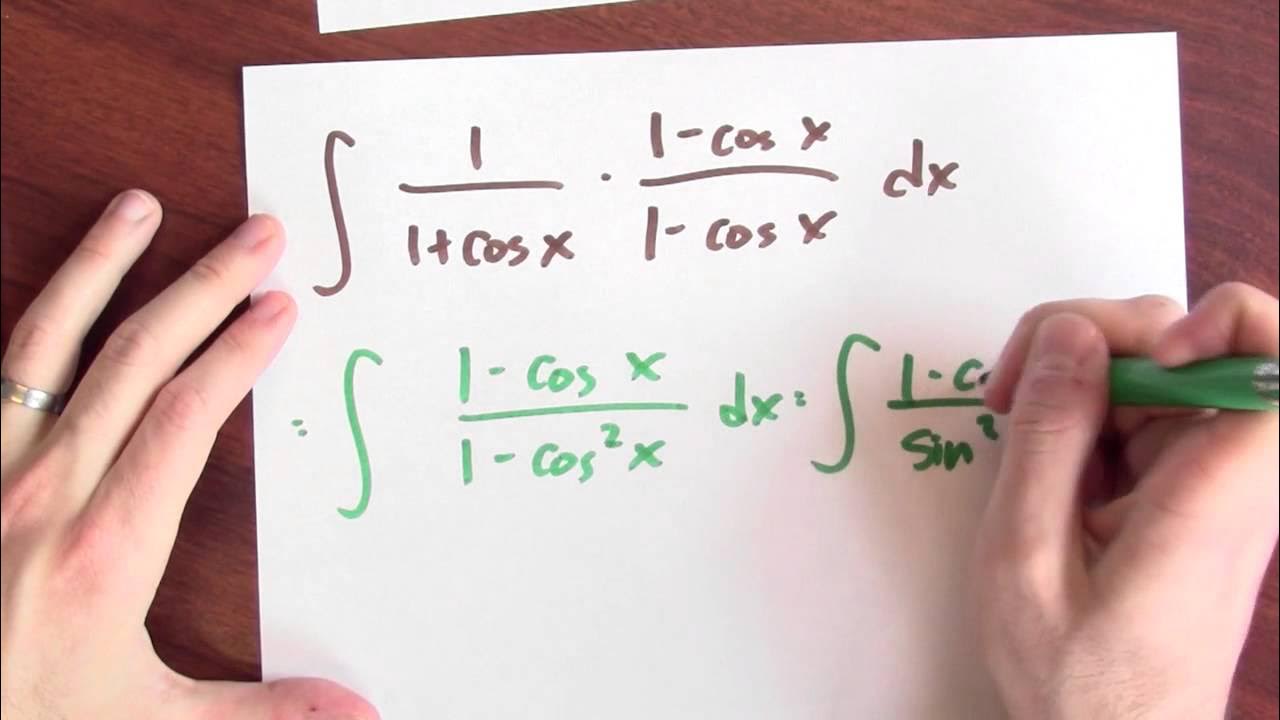 ∫ 1/(1+cos x) · (1-cos x)/(1-cos x) dx
= ∫ (1-cos x)/(1-cos²x) dx = ∫ 1-c / sin²